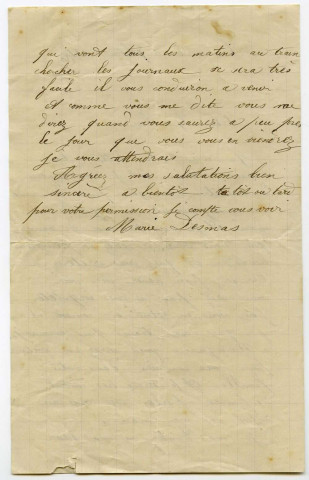 qui vont tous les matins au train
chercher les journeaux se sera très
facile il vous conduiron a venir
et comme vous me dite vous me
direz quand vous saurez a peu près
le jour que vous vous en viendrez
je vous attendrais
Agréez mes salutations bien
sincère a bientôt tot ou tard
pour votre permission je compte vous voir
Marie Desmas